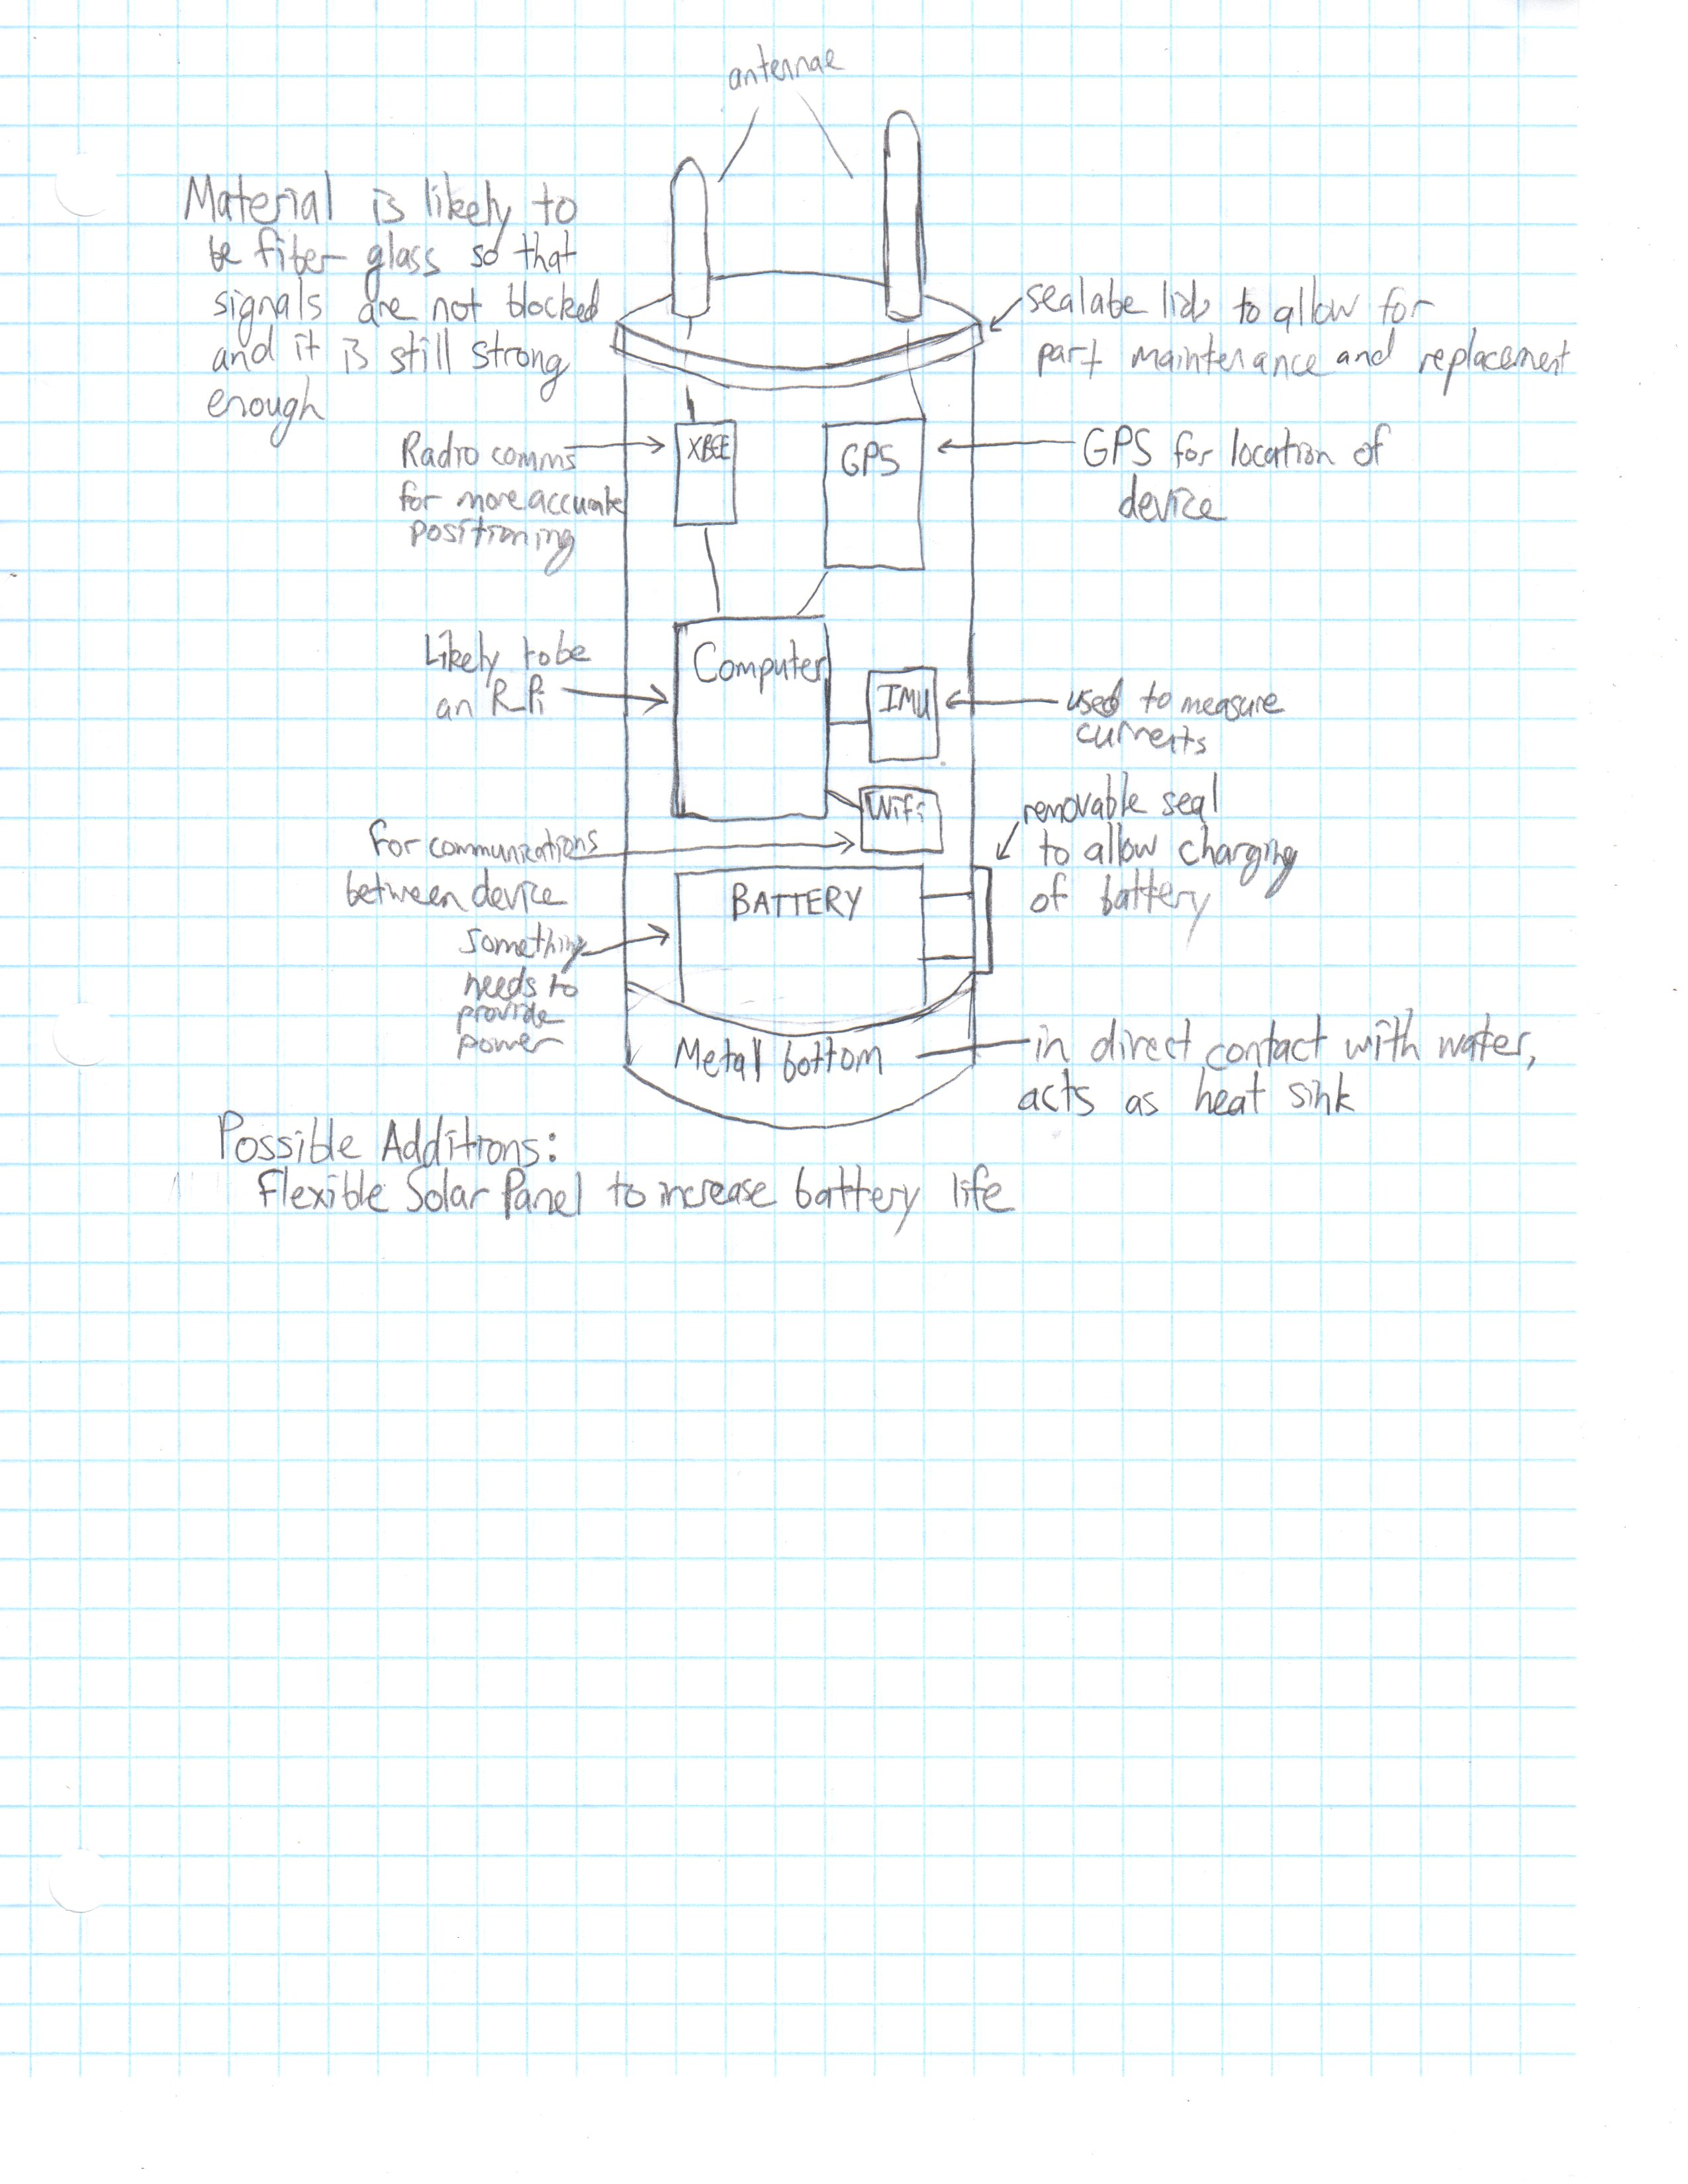 antennae
Material is likely to
be fiber glass so that
signals are not blocked
and it is still strong
enough
sealabe lid to allow for
part maintenance and replacement
XBEE
GPS
Radio comms
for more accurate
positioning
GPS for location of
device
Computer
Likely to be
an R_Pi
IMU
used to measure
currents
Wifi
for communications
between device
removable seal
to allow charging
of battery
BATTERY
something
needs to
provide
power
Metal bottom
in direct contact with water,
acts as heat sink
Possible Additions:
Flexible Solar Panel to increase battery life